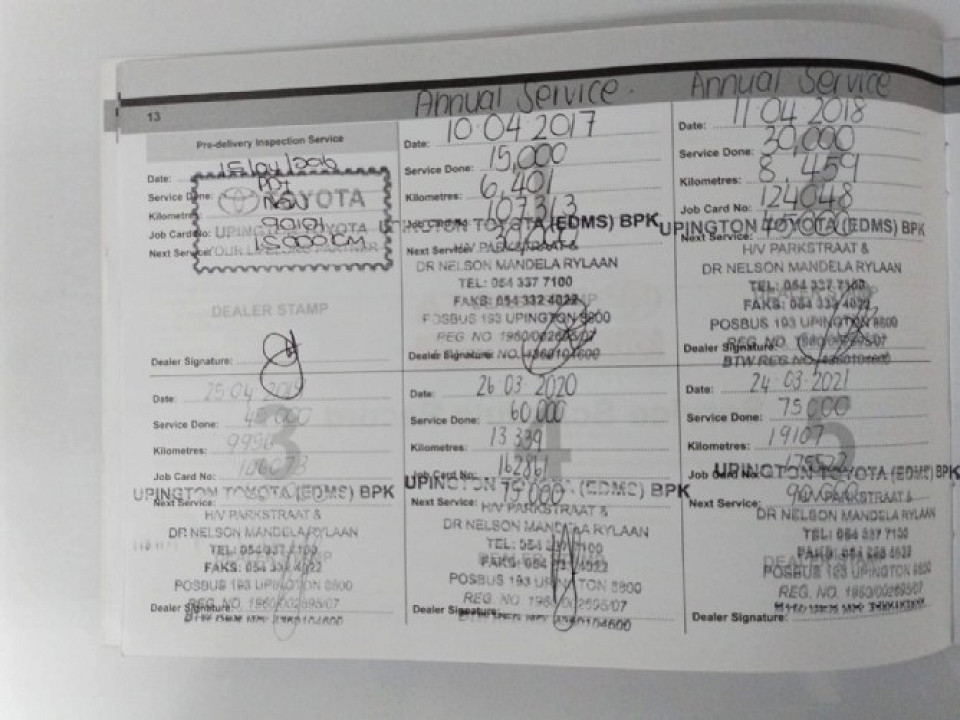 13
Pre-delivery Inspection Service
Date: 15/04/2016
Service Done: PDI
Kilometres:
Job Card No: 90101
Next Service: 15 000 KM
TOYOTA
DEALER STAMP
Dealer Signature:
Annual Service.
Date: 10.04.2017
Service Done: 15,000
Kilometres: 6,401
107313
UPINGTON TOYOTA (EDMS) BPK
Next Service:
H/V PARKSTRAAT &
DR NELSON MANDELA RYLAAN
TEL: 054 337 7100
FAKS: 054 332 4022
POSBUS 193 UPINGTON 8800
REG. NO 1960/002695/07
Dealer Signature: NO. 4360104600
Annual Service
Date: 11.04.2018
Service Done: 30,000
Kilometres: 8.459
Job Card No: 124048
UPINGTON TOYOTA (EDMS) BPK
Next Service: 45 000
H/V PARKSTRAAT &
DR NELSON MANDELA RYLAAN
TEL: 054 337 7100
FAKS: 054 332 4022
POSBUS 193 UPINGTON 8800
REG. NO 1960/002695/07
Dealer Signature:
BTW REG NO 4360104600
Date: 25.04.2019
Service Done: 45 000
Kilometres:
Job Card No:
UPINGTON TOYOTA (EDMS) BPK
Next Service:
H/V PARKSTRAAT &
DR NELSON MANDELA RYLAAN
TEL: 054 337 7100
FAKS: 054 332 4022
POSBUS 193 UPINGTON 8800
REG. NO. 1960/002695/07
Dealer Signature:
3
Date: 26.03.2020
Service Done: 60 000
Kilometres: 13 339
Job Card No: 162861
UPINGTON TOYOTA (EDMS) BPK
Next Service: 75 000
H/V PARKSTRAAT &
DR NELSON MANDELA RYLAAN
TEL: 054 337 7100
FAKS: 054 332 4022
POSBUS 193 UPINGTON 8800
REG. NO. 1960/002695/07
Dealer Signature:
4
Date: 24.03.2021
Service Done: 75000
Kilometres: 19107
Job Card No: 175522
UPINGTON TOYOTA (EDMS) BPK
Next Service:
H/V PARKSTRAAT &
DR NELSON MANDELA RYLAAN
TEL: 054 337 7100
POSBUS 193 UPINGTON 8800
REG. NO. 1960/002695/07
Dealer Signature: